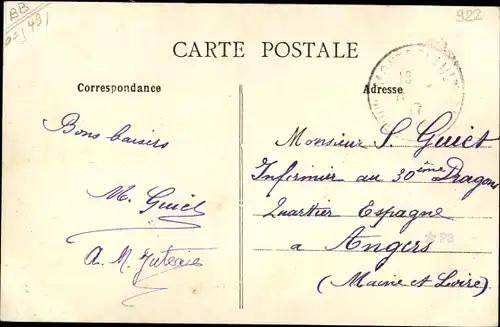 BB
49
922
CARTE POSTALE
Correspondance
Adresse
18
17
Bons baisers
M. Guiet
A. M.
Monsieur S. Guiet
Infirmier au 30ème Dragons
Quartier Espagne
a Angers
PB
(Maine et Loire)